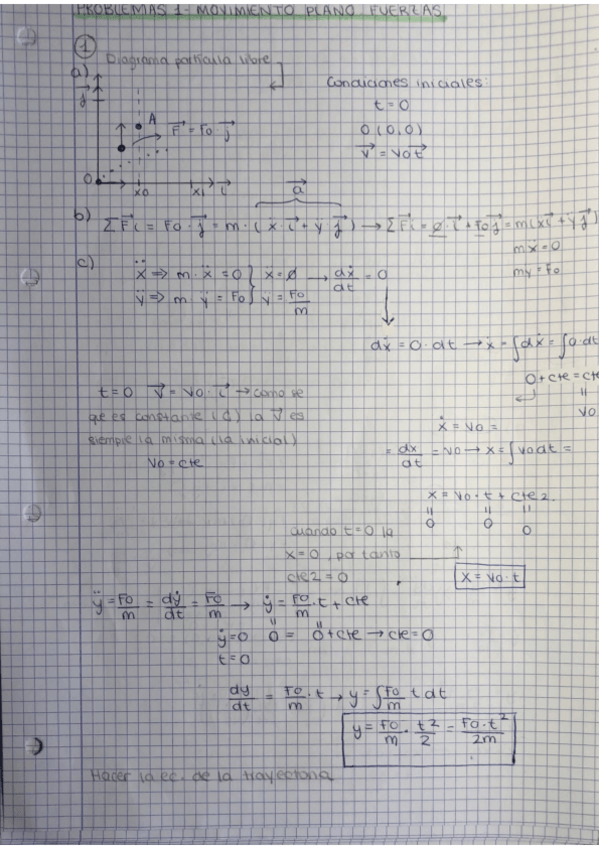 PROBLEMAS 1 - MOVIMIENTO PLANO FUERZAS
1
Diagrama partícula libre
a)
Condiciones iniciales:
t = 0
0 (0,0)
v⃗ = v0 i⃗
j⃗
A
F⃗ = F0 · j⃗
0
x0
x1
i⃗
a⃗
b) ΣF⃗i = F0 · j⃗ = m · (x · i⃗ + y j⃗) → ΣF⃗i = 0 · i⃗ + F0 j⃗ = m(ẍ i⃗ + ÿ j⃗)
mx = 0
my = F0
c) ẍ ⇒ m · ẍ = 0 } x = 0 → dẋ/dt = 0
ÿ ⇒ m · ÿ = F0 } y = F0/m
dẋ = 0 · dt → ẋ = ∫dẋ = ∫0 · dt
0 + cte = cte
=
v0
t = 0 v⃗ = v0 · i⃗ → como
que es constante la v⃗ es
siempre la misma (la inicial)
v0 = cte
ẋ = v0 =
= dx/dt = v0 → x = ∫v0 dt =
x = v0 · t + cte 2.
= = =
0 0 0
cuando t = 0 la
x = 0, por tanto
cte 2 = 0
x = v0 · t
ÿ = F0/m = dẏ/dt = F0/m → ẏ = F0/m · t + cte
ẏ = 0 0 = 0 + cte → cte = 0
t = 0
dy/dt = F0/m · t → y = ∫F0/m t dt
y = F0/m · t²/2 = F0 · t²/2m
Hacer la ec. de la trayectoria